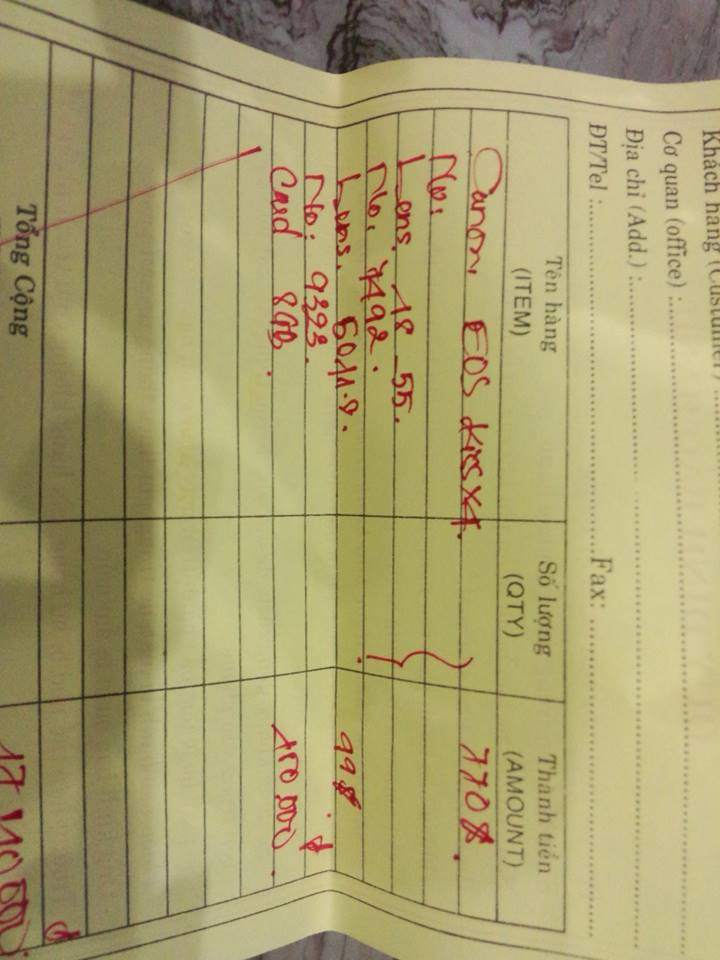 Khách hàng (Custumer)
Cơ quan (office) :
Địa chỉ (Add.) :
ĐT/Tel : Fax:
Tên hàng Số lượng Thành tiền
(ITEM) (QTY) (AMOUNT)
Canon. EOS kiss x4. 770$.
No.
Lens. 18-55.
No. 7492.
Lens. 50/1.8. 99$
No: 9323.
Card 8GB.
Tổng Cộng